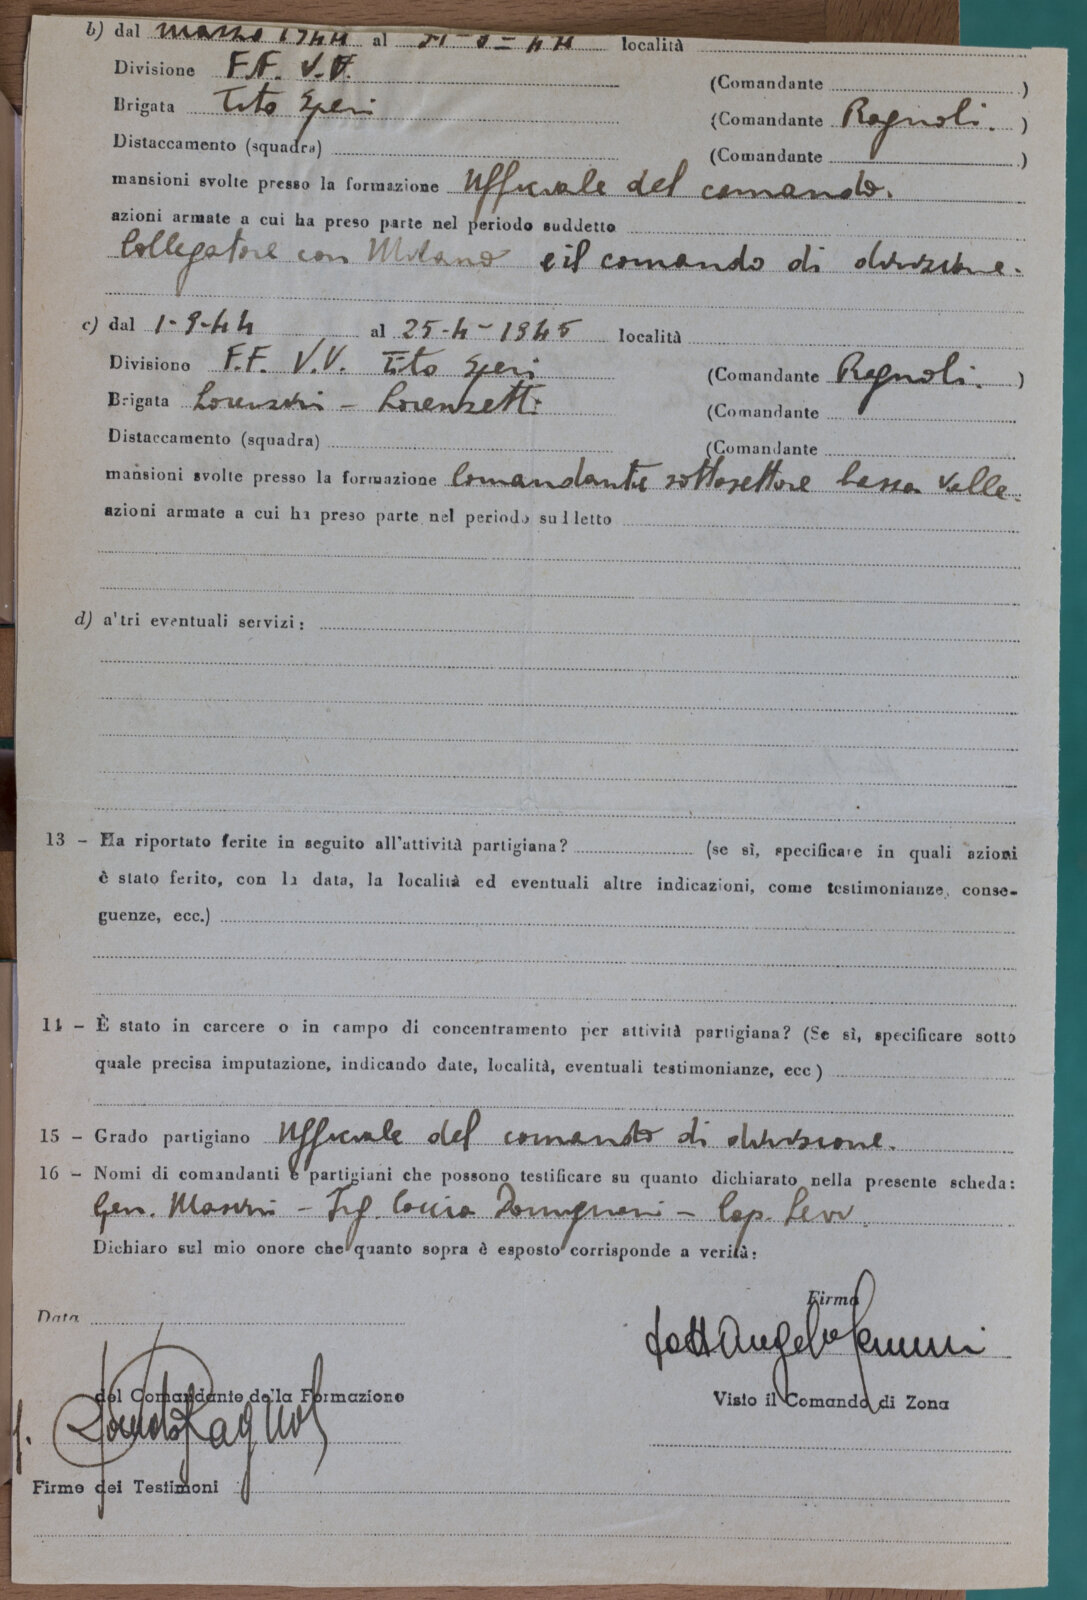 b) dal marzo 1944 al 31-8-44 località
Divisione F.F. V.V. (Comandante )
Brigata Tito Speri (Comandante Ragnoli. )
Distaccamento (squadra) (Comandante )
mansioni svolte presso la formazione Ufficiale del comando.
azioni armate a cui ha preso parte nel periodo suddetto
Collegatore con Milano e il comando di divisione.
c) dal 1-9-44 al 25-4-1945 località
Divisione F.F. V.V. Tito Speri (Comandante Ragnoli. )
Brigata Lorenzini - Lorenzetti (Comandante
Distaccamento (squadra) (Comandante
mansioni svolte presso la formazione Comandante sottosettore bassa Valle.
azioni armate a cui ha preso parte nel periodo suddetto
d) altri eventuali servizi:
13 - Ha riportato ferite in seguito all'attività partigiana? (se sì, specificare in quali azioni
è stato ferito, con la data, la località ed eventuali altre indicazioni, come testimonianze, conse-
guenze, ecc.)
14 - È stato in carcere o in campo di concentramento per attività partigiana? (Se sì, specificare sotto
quale precisa imputazione, indicando date, località, eventuali testimonianze, ecc)
15 - Grado partigiano Ufficiale del comando di divisione.
16 - Nomi di comandanti e partigiani che possono testificare su quanto dichiarato nella presente scheda:
Gen. Masini - Caccia Domignoni - Cap.
Dichiaro sul mio onore che quanto sopra è esposto corrisponde a verità:
Firma
Data
dott Angelo
del Comandante della Formazione
Visto il Comando di Zona
Ragnoli
Firme dei Testimoni